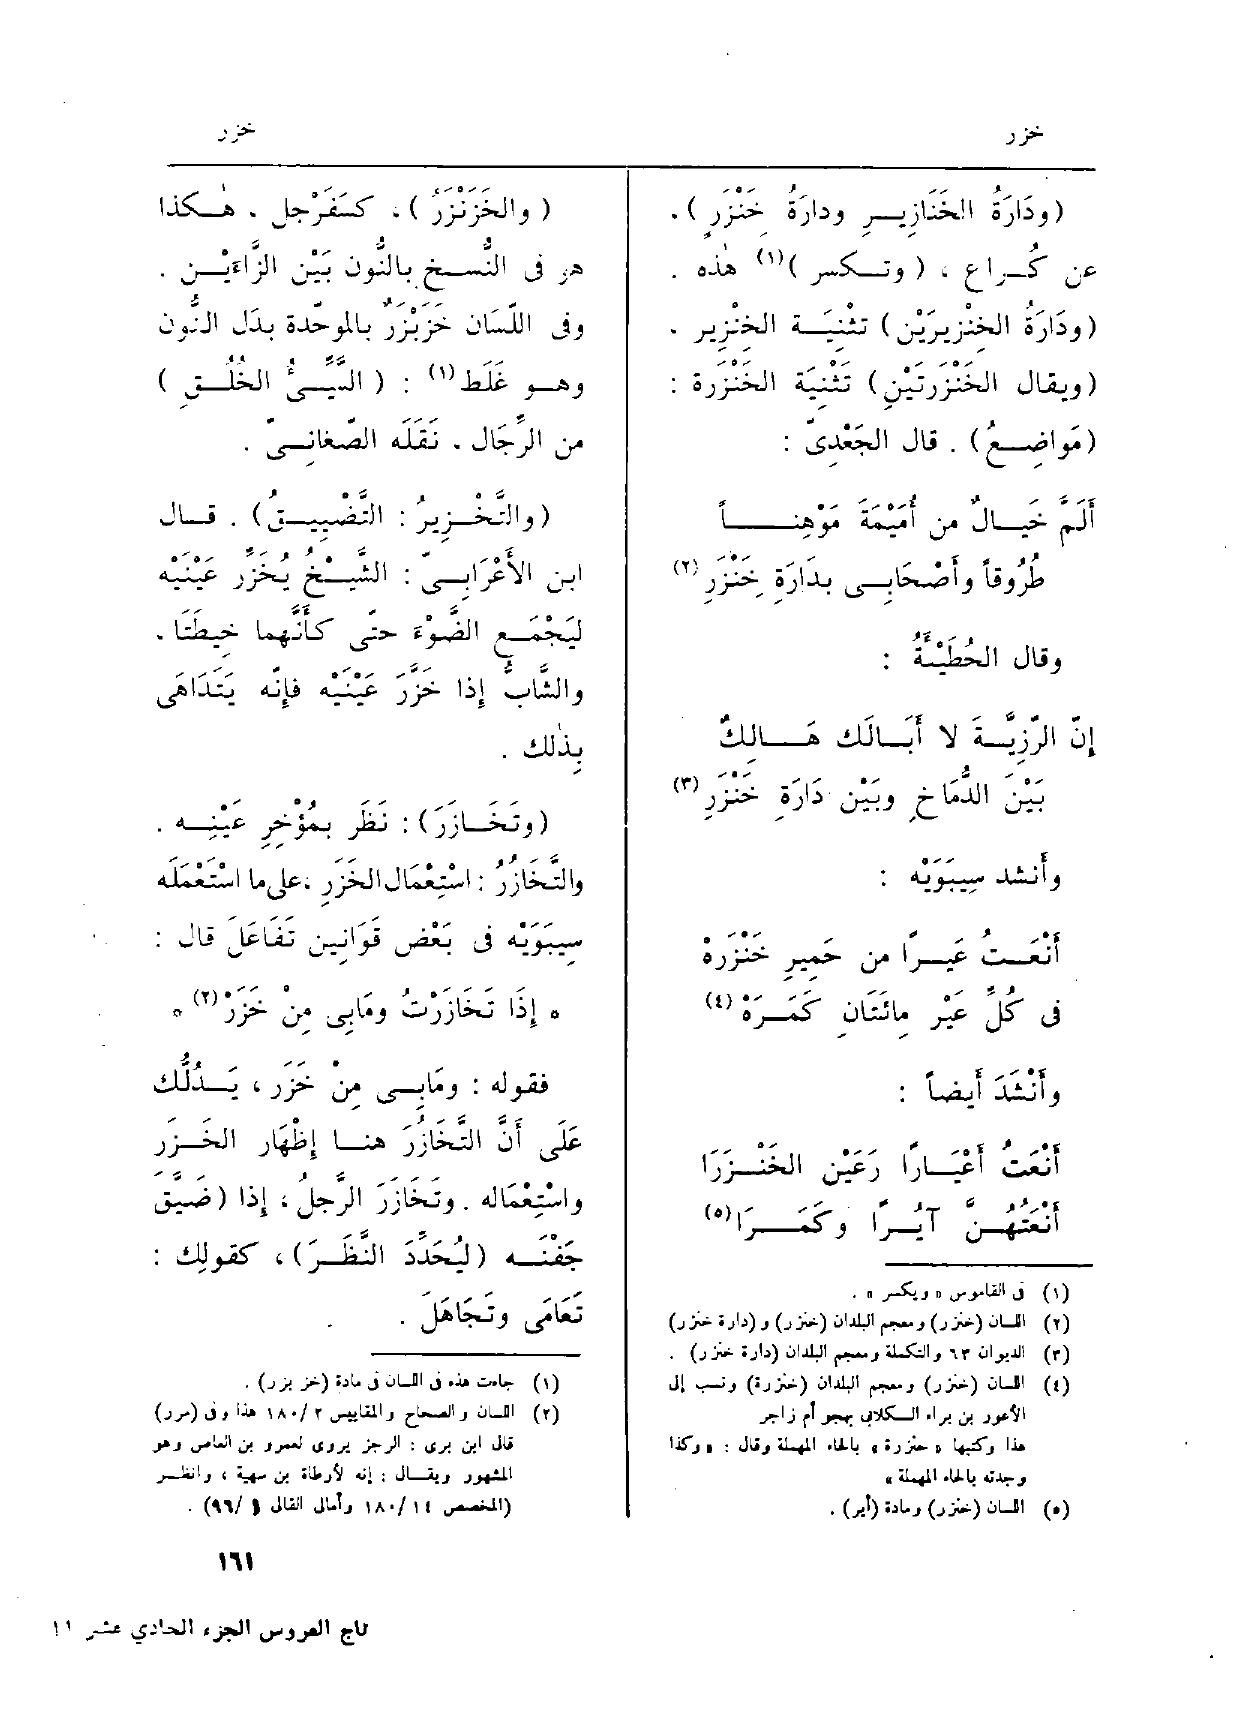 خزر
خزر
(ودَارَةُ الخَنَازِيـــرِ ودارَةُ خَنْزَرٍ) ،
عن كُــراع ، (وتــكسر)(١) هٰذه .
(ودَارَةُ الخِنْزِيرَيْنِ) تثنِيَــة الخنزير .
(ويقال الخَنْزَرتَيْنِ) تَثْنِيَة الخَنْزَرة :
(مَواضِــعُ) . قال الجَعْدِىّ :
أَلَمَّ خَيَــالٌ من أُمَيْمَةَ مَوْهِنــــاً
طُرُوقاً وأَصْحَابِــى بدَارَةِ خَنْزَرِ (٢)
وقال الحُطَيْئَةُ :
إِنّ الرَّزِيَّــةَ لا أَبَــالَك هَـــالِكٌ
بَيْنَ الدُّمَاخِ وبَيْن دَارَةِ خَنْزَرِ (٣)
وأَنشد سِيبَوَيْه :
أَنْعَــتُ عَيــرًا من حَمِيرِ خَنْزَرهْ
فى كُلِّ عَيْرٍ مِائَتَانِ كَمَــرَهْ (٤)
وأَنْشَدَ أَيضاً :
أَنْعَتُ أَعْيَــارًا رَعَيْن الخَنْــزَرَا
أَنْعَتُهُــنَّ آيُــرًا وكَمَــــرَا(٥)
(١) فى القاموس « ويكسر » .
(٢) اللسان (خنزر) ومعجم البلدان (خنزر) و (دارة خنزر)
(٣) الديوان ٦٣ والتكملة ومعجم البلدان (دارة خنزر) .
(٤) اللسان (خنزر) ومعجم البلدان (خنزرة) ونسب إلى
الأعور بن براء الــكلابى يهجو أم زاجر
هذا وكتبها « خنزرة » بالخاء المهملة وقال : « وكذا
وجدته بالخاء المهملة »
(٥) اللسان (خنزر) ومادة (أير) .
(والخَزَنْزَرُ) ، كــسَفَرْجل ، هٰــكذا
هو فى النُّســخ بالنُّون بَيْن الزَّاءَيْــن .
وفى اللّسَان خَزَبْزَرٌ بالموحّدة بدَل النُّون
وهــو غَلَط(١) : (السَّيِّــىُّ الخُلُــقِ)
من الرِّجَال . نَقَلَه الصّغانِــىّ .
(والتَّخْــزِيرُ : التَّضْيِيــقُ) . قــال
ابن الأَعْرَابــىّ : الشَّيْــخُ يُخَزِّر عَيْنَيْه
ليَجْمَــع الضَّوْءَ حتّى كأَنَّهما خِيطَتَا ،
والشَّابُّ إِذا خَزَّرَ عَيْنَيْه فإِنّه يَتَدَاهَى
بِذٰلك .
(وتَخَــازَرَ) : نَظَر بمُؤْخِرِ عَيْنِــه .
والتَّخَازُرُ : اسْتِعْمَال الخَزَرِ ،على ما اسْتَعْمَله
سِيبَوَيْه فى بَعْضِ قَوَانِينِ تَفَاعَلَ قال :
* إِذَا تَخَازَرْتُ ومَابِى مِنْ خَزَرْ (٢) *
فقوله : ومَابِــى مِنْ خَزَر ، يَــدُلُّك
عَلَى أَنَّ التَّخَازُرَ هنــا إِظْهَار الخَــزَر
واسْتِعْمَاله . وتَخَازَرَ الرَّجلُ ، إِذا (ضَيَّقَ
جَفْنَــه (ليُحَدِّدَ النَّظَــرَ) ، كقولك :
تَعَامَى وتَجَاهَلَ .
(١) جاءت هذه فى اللسان فى مادة (خز بزر) .
(٢) اللسان والصحاح والمقاييس ٢ /١٨٠ هذا وفى (مرر)
قال ابن برى : الرجز يروى لعمرو بن العاص وهو
المشهور ويقــال : إنه لأرطاة بن سهية ، وانظــر
(المخصص ١٤ /١٨٠ وأمالى القالى /٩٦) .
١٦١
تاج العروس الجزء الحادي عشر ١١